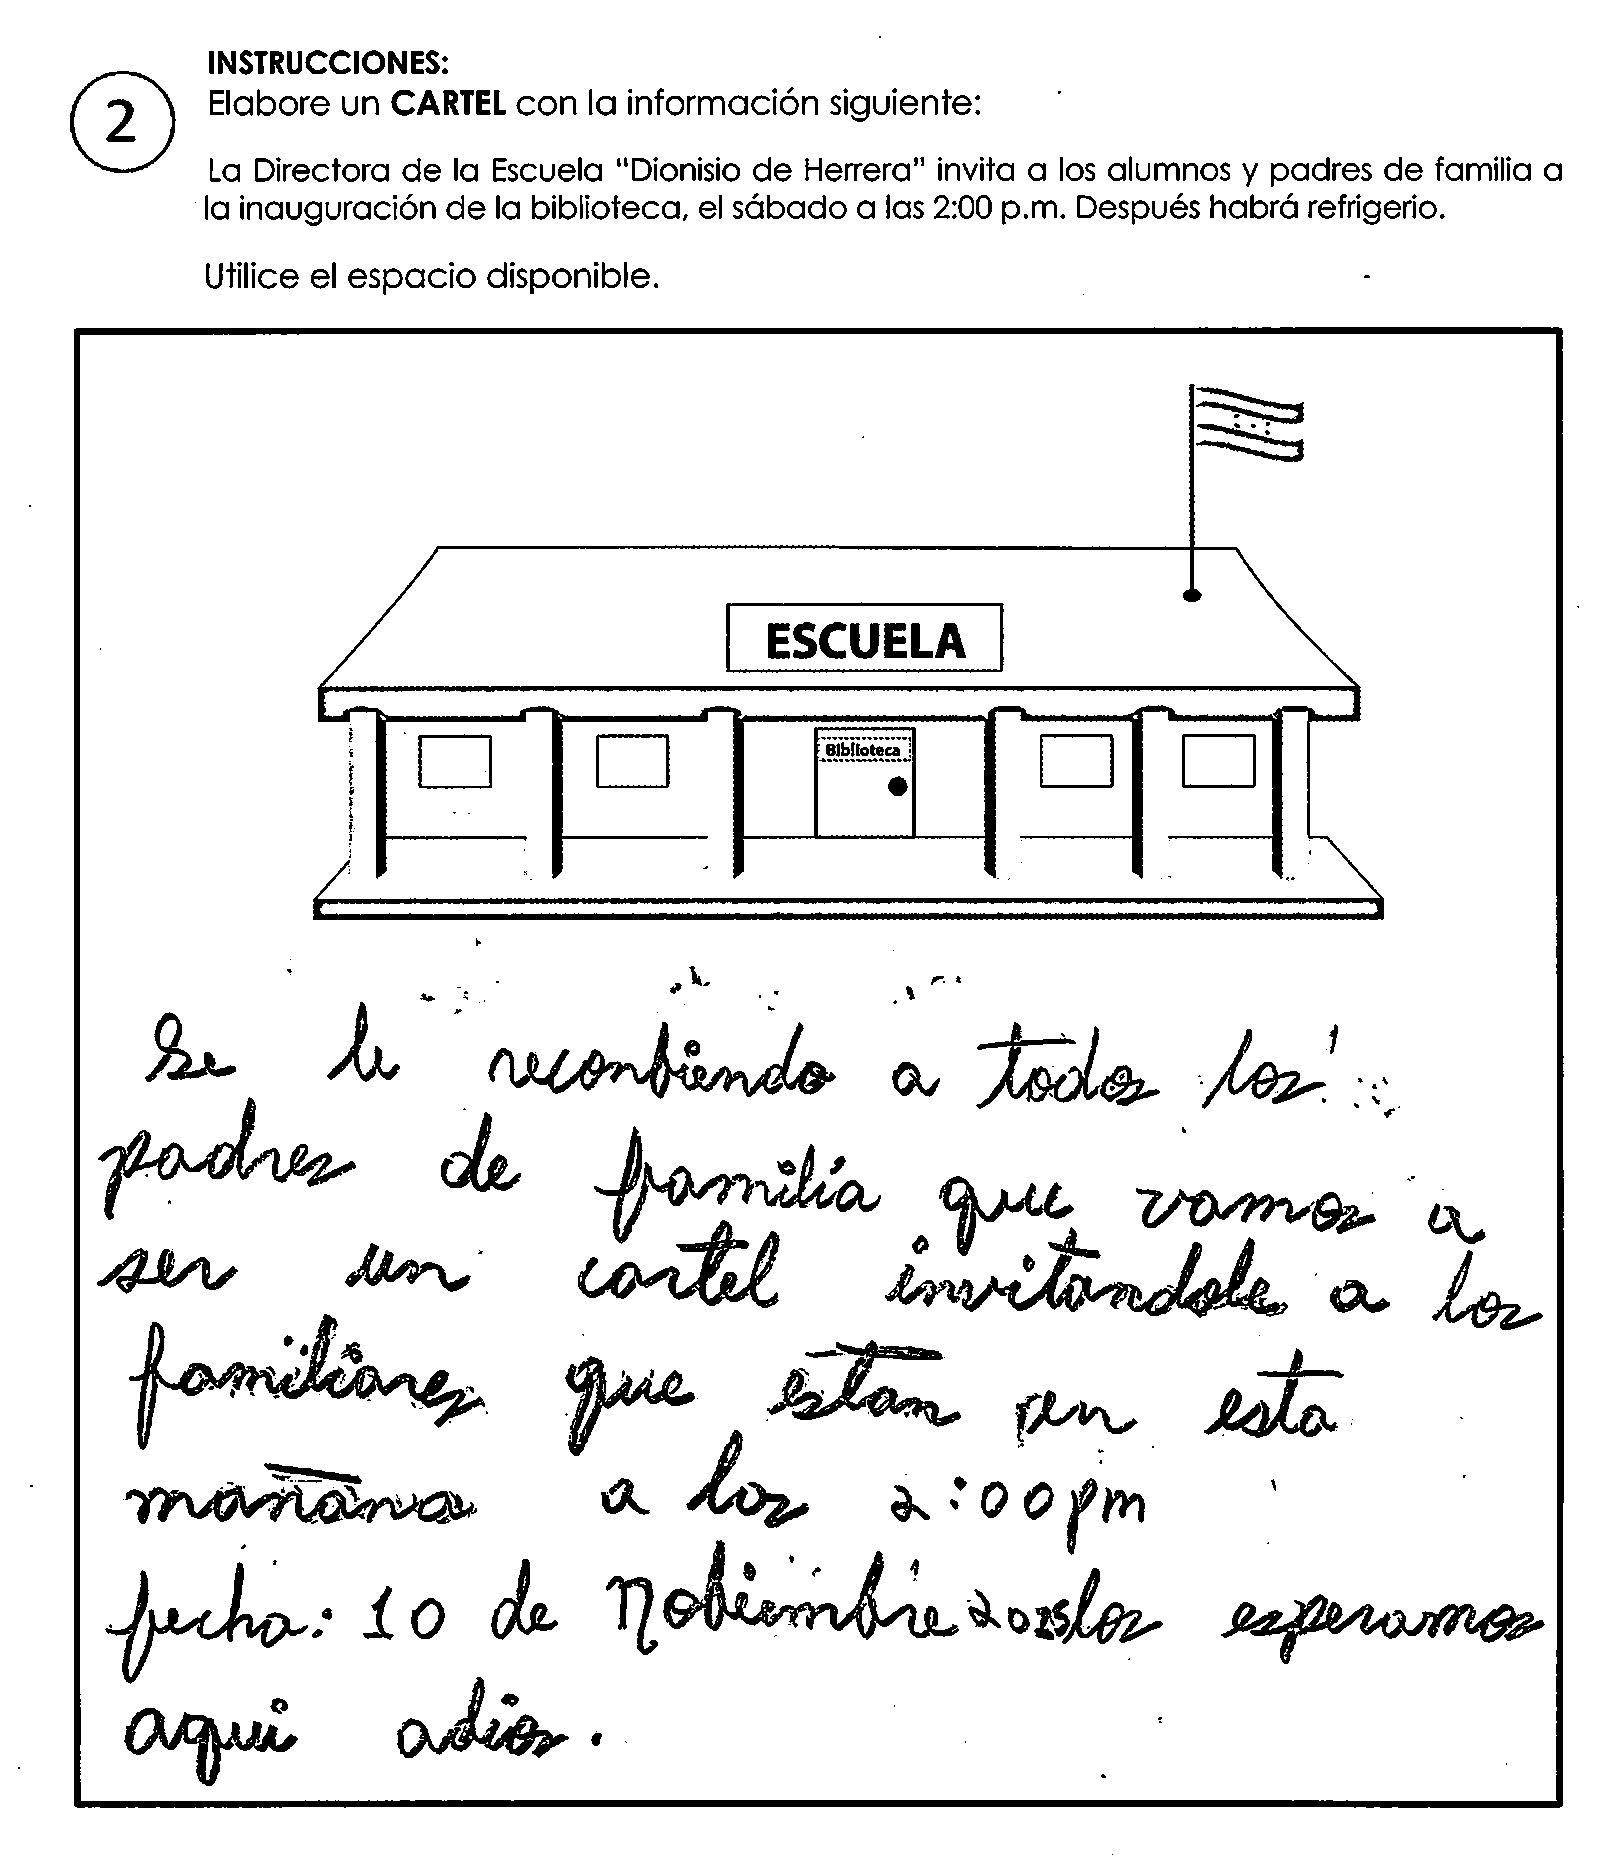 INSTRUCCIONES:
2
Elabore un CARTEL con la información siguiente:
La Directora de la Escuela "Dionisio de Herrera" invita a los alumnos y padres de familia a
la inauguración de la biblioteca, el sábado a las 2:00 p.m. Después habrá refrigerio.
Utilice el espacio disponible.
ESCUELA
Biblioteca
Se le reconbiendo a todos los
padres de familia que vamos a
ser un cartel invitandole a los
familiares que estan en esta
mañana a los 2:00 pm
fecha: 10 de Nobiembre los esperamos
aqui adios.